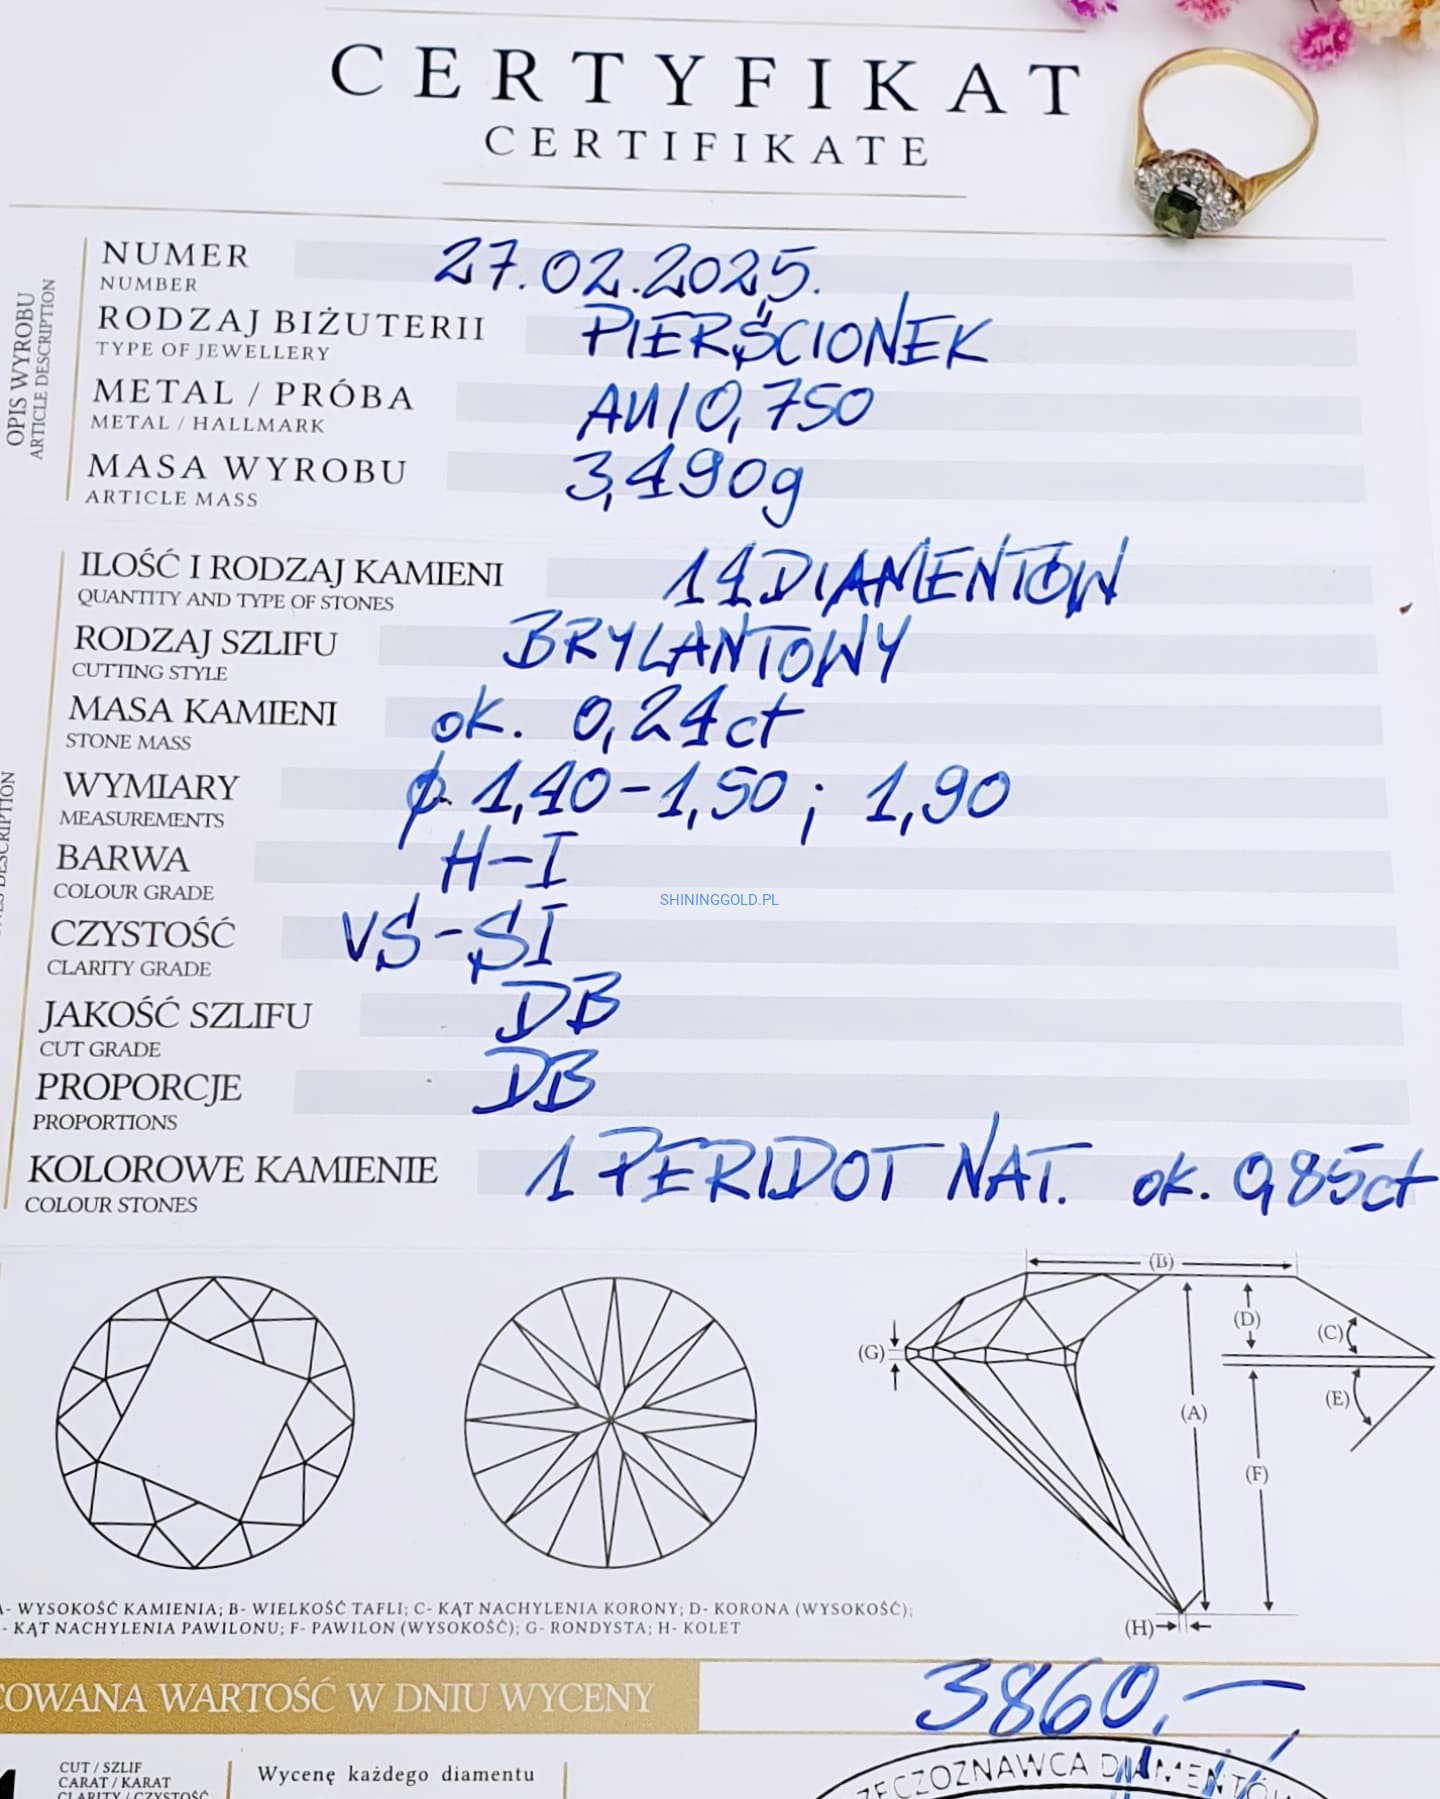 CERTYFIKAT
CERTIFIKATE
OPIS WYROBU
ARTICLE DESCRIPTION
NUMER 27.02.2025.
NUMBER
RODZAJ BIŻUTERII PIERŚCIONEK
TYPE OF JEWELLERY
METAL / PRÓBA AU/0,750
METAL / HALLMARK
MASA WYROBU 3,490g
ARTICLE MASS
ILOŚĆ I RODZAJ KAMIENI 14 DIAMENTÓW
QUANTITY AND TYPE OF STONES
RODZAJ SZLIFU BRYLANTOWY
CUTTING STYLE
MASA KAMIENI ok. 0,24ct
STONE MASS
WYMIARY ϕ 1,40-1,50; 1,90
MEASUREMENTS
BARWA H-I
COLOUR GRADE
SHININGGOLD.PL
CZYSTOŚĆ VS-SI
CLARITY GRADE
JAKOŚĆ SZLIFU DB
CUT GRADE
PROPORCJE DB
PROPORTIONS
KOLOROWE KAMIENIE 1 PERIDOT NAT. ok. 0,85ct
COLOUR STONES
DESCRIPTION
(B)
(D)
(C)
(G)
(E)
(A)
(F)
(H)
A- WYSOKOŚĆ KAMIENIA; B- WIELKOŚĆ TAFLI; C- KĄT NACHYLENIA KORONY; D- KORONA (WYSOKOŚĆ);
- KĄT NACHYLENIA PAWILONU; F- PAWILON (WYSOKOŚĆ); G- RONDYSTA; H- KOLET
COWANA WARTOŚĆ W DNIU WYCENY 3860,—
CUT / SZLIF
CARAT / KARAT
CLARITY / CZYSTOŚĆ
Wycenę każdego diamentu
RZECZOZNAWCA DIAMENTÓW